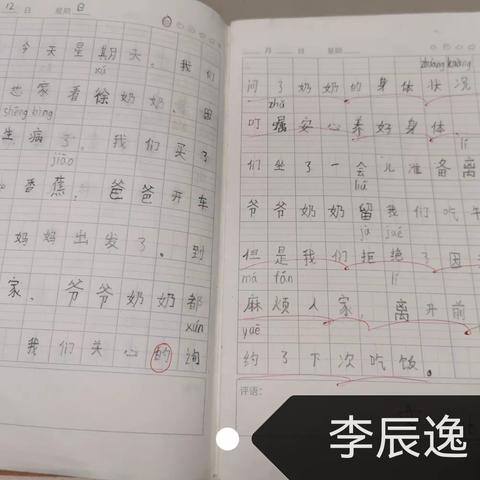 12 日 星期 日
今天星期天,我们
xú
家看徐奶奶,因
shēng bìng
生病了,我们买了
jiāo
香蕉,爸爸开车
妈妈出发了。到
家,爷爷奶奶都
xún
我们关心的询
月 日 星期
zhuàng kuàng
问了奶奶的身体状况
zhǔ
叮嘱安心养好身体,
lí
们坐了一会儿准备离
liú
爷爷奶奶留我们吃午
jù jué
但是我们拒绝了因
má fán lí
麻烦人家,离开前
yuē
约了下次吃饭。
评语:
李辰逸